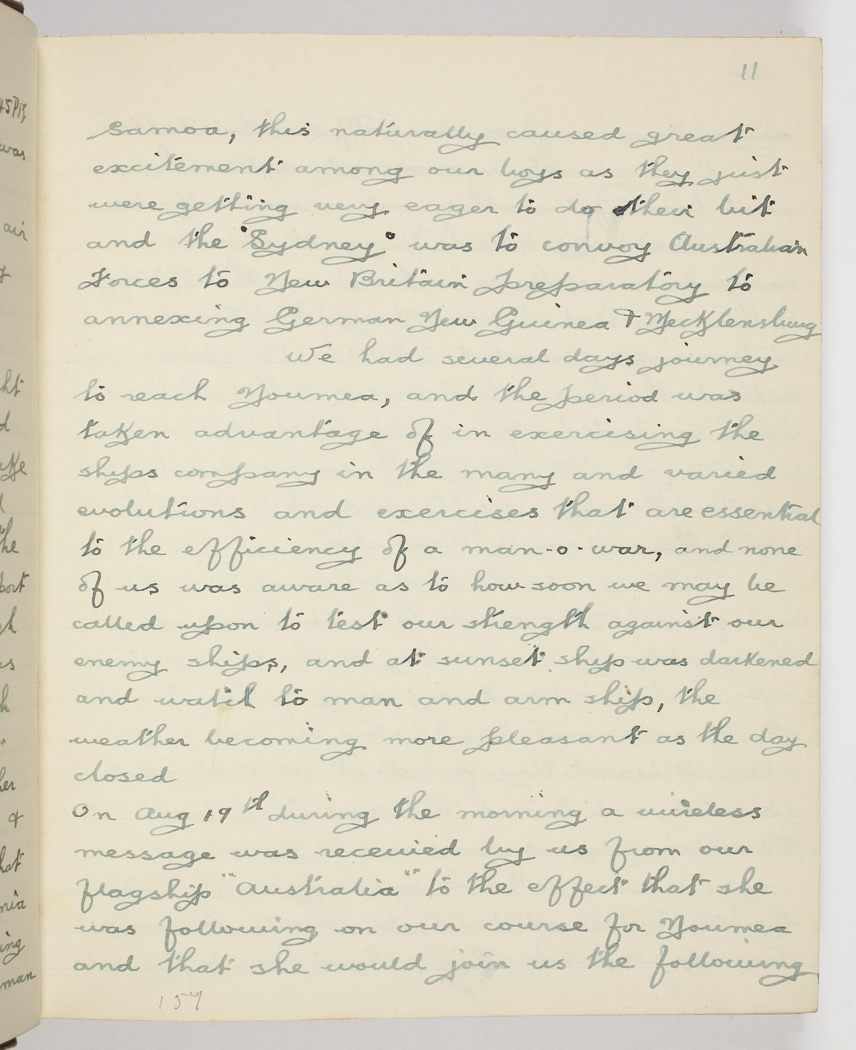 11
Samoa, this naturally caused great
excitement among our boys as they just
were getting very eager to do their bit
and the "Sydney" was to convoy Australian
Forces to New Britain preparatory to
annexing German New Guinea & Mecklensburg
We had several days journey
to reach Noumea, and the period was
taken advantage of in exercising the
ships company in the many and varied
evolutions and exercises that are essential
to the efficiency of a man-o-war, and none
of us was aware as to how soon we may be
called upon to test our strength against our
enemy ships, and at sunset ship was darkened
and watch to man and arm ship, the
weather becoming more pleasant as the day
closed
On Aug 19th during the morning a wireless
message was received by us from our
flagship "Australia" to the effect that she
was following on our course for Noumea
and that she would join us the following
157
45PM
was
air
ht
d
the
port
gh
es
h
her
&
hat
nia
ing
man